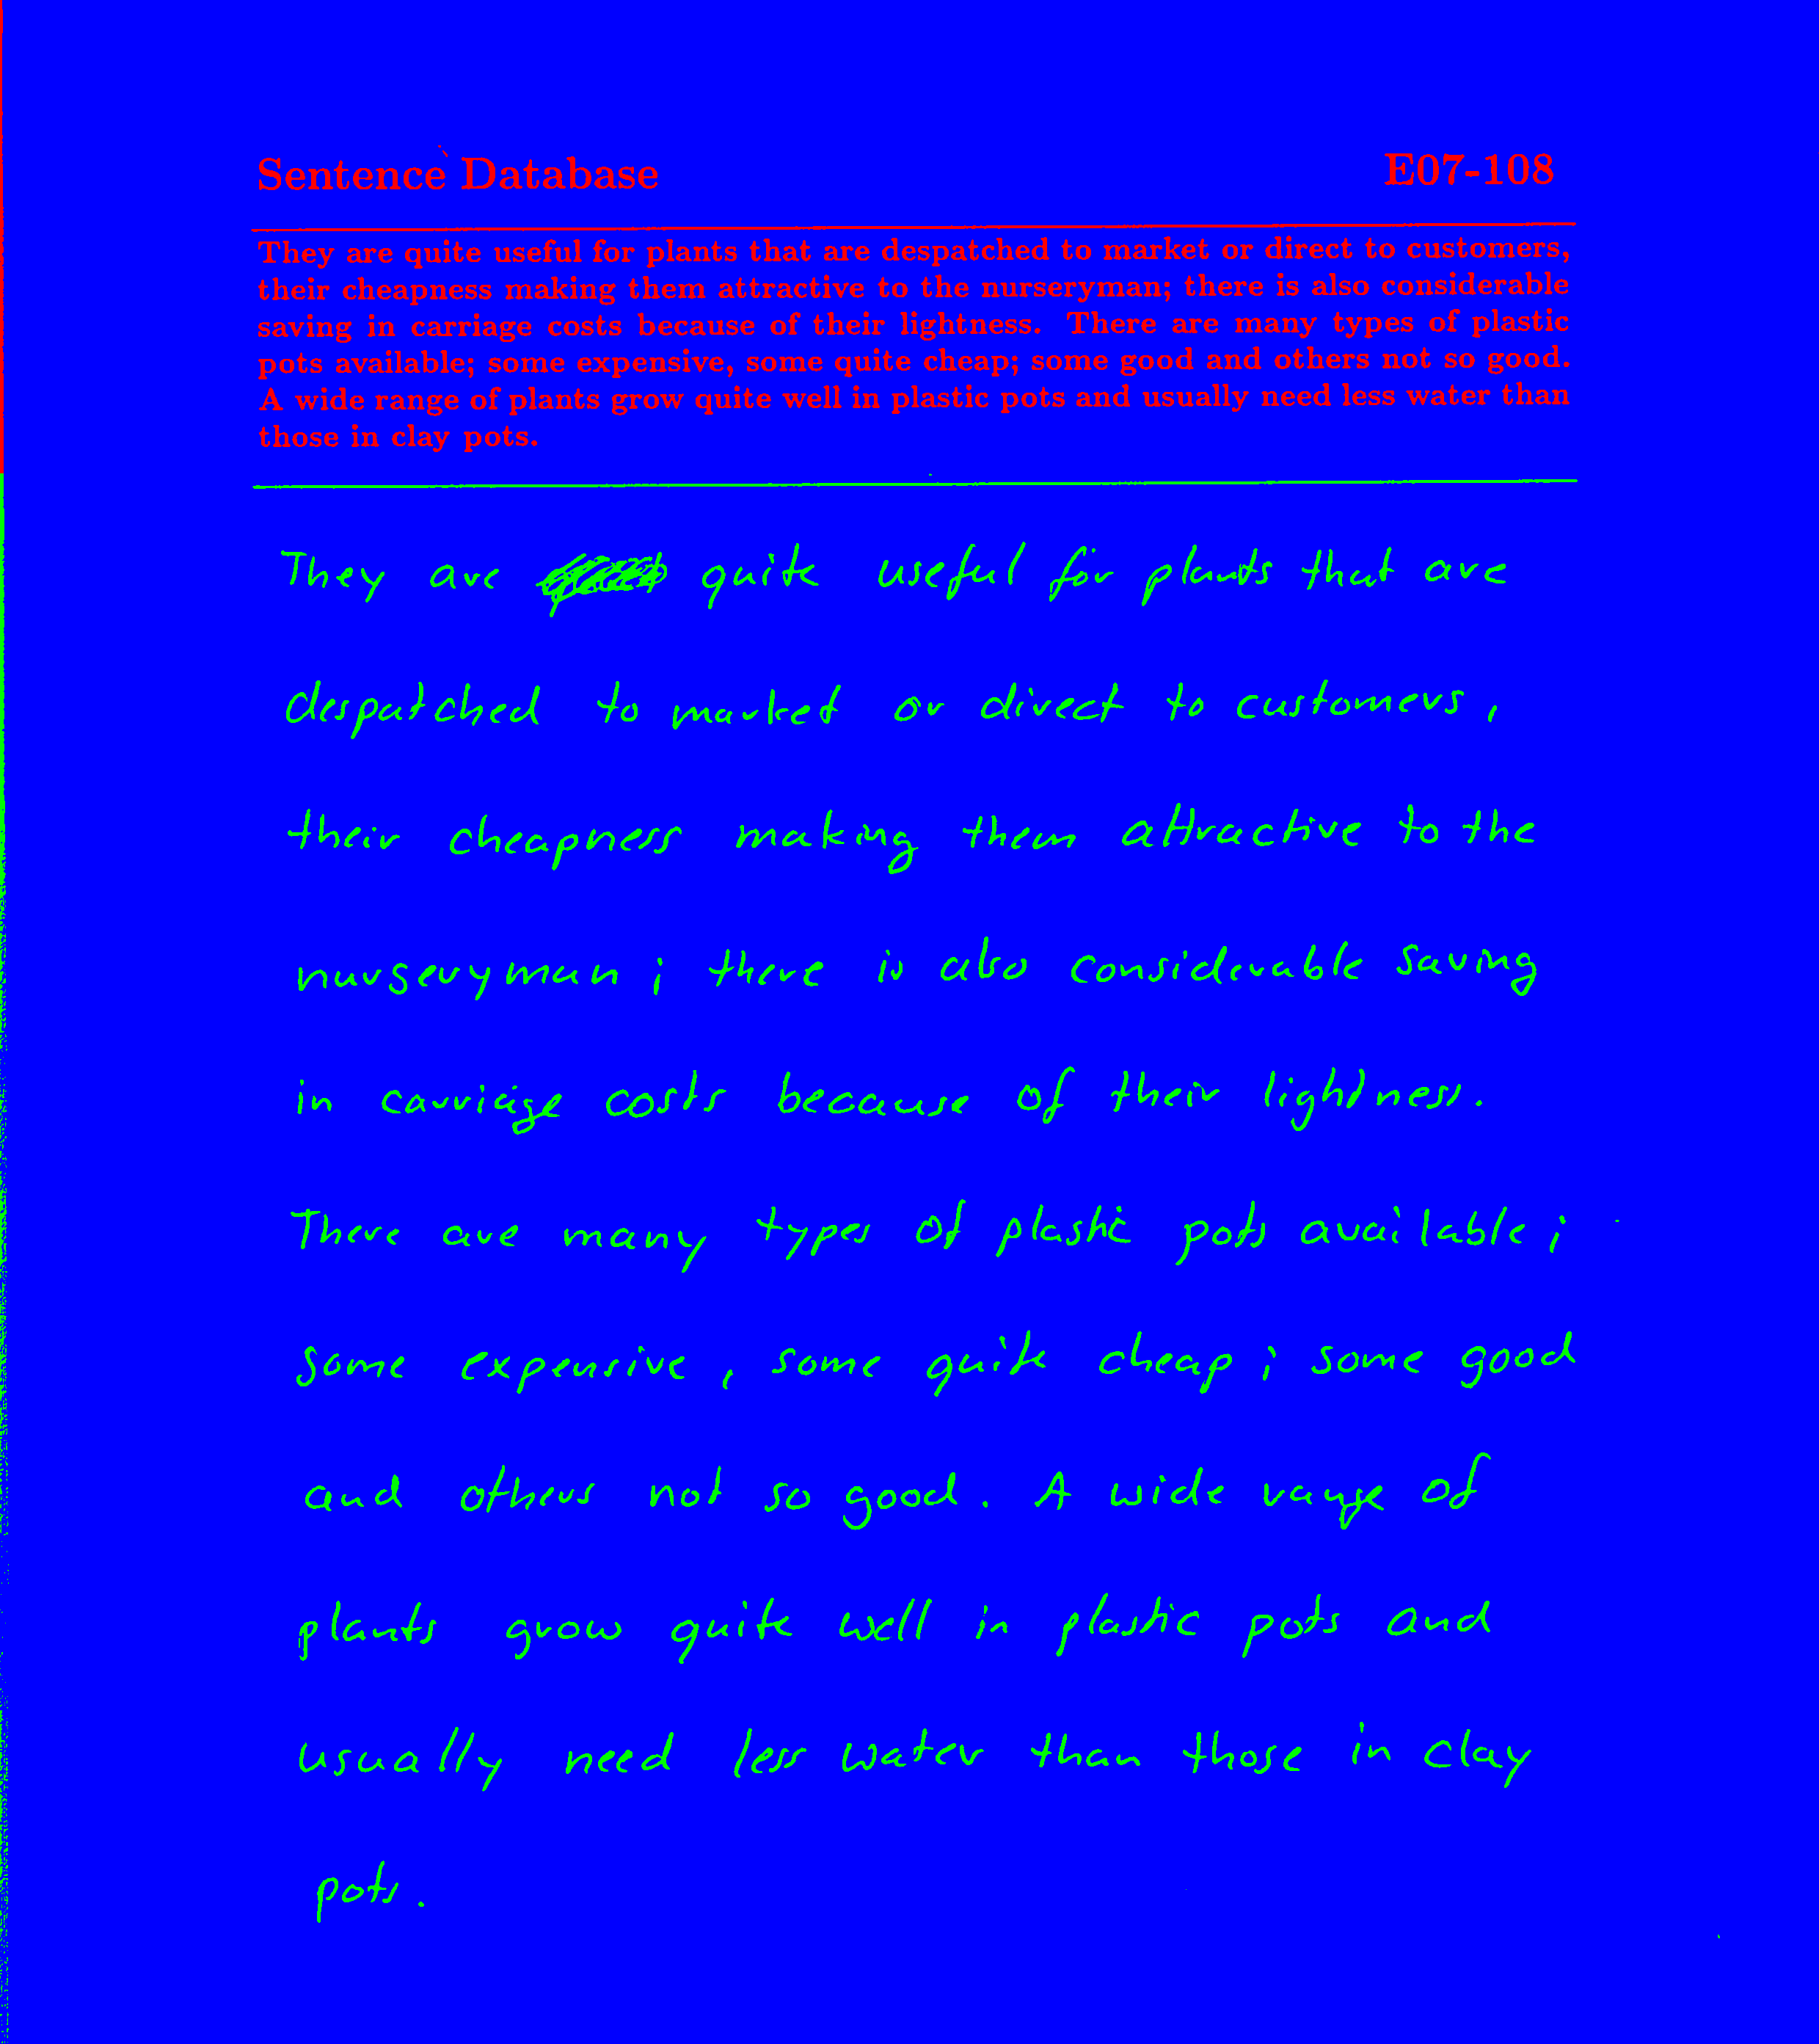 Sentence Database E07-108
They are quite useful for plants that are despatched to market or direct to customers,
their cheapness making them attractive to the nurseryman; there is also considerable
saving in carriage costs because of their lightness. There are many types of plastic
pots available; some expensive, some quite cheap; some good and others not so good.
A wide range of plants grow quite well in plastic pots and usually need less water than
those in clay pots.
They are quite useful for plants that are
despatched to market or direct to customers,
their cheapness making them attractive to the
nurseryman; there is also considerable saving
in carriage costs because of their lightness.
There are many types of plastic pots available;
some expensive, some quite cheap; some good
and others not so good. A wide range of
plants grow quite well in plastic pots and
usually need less water than those in clay
pots.